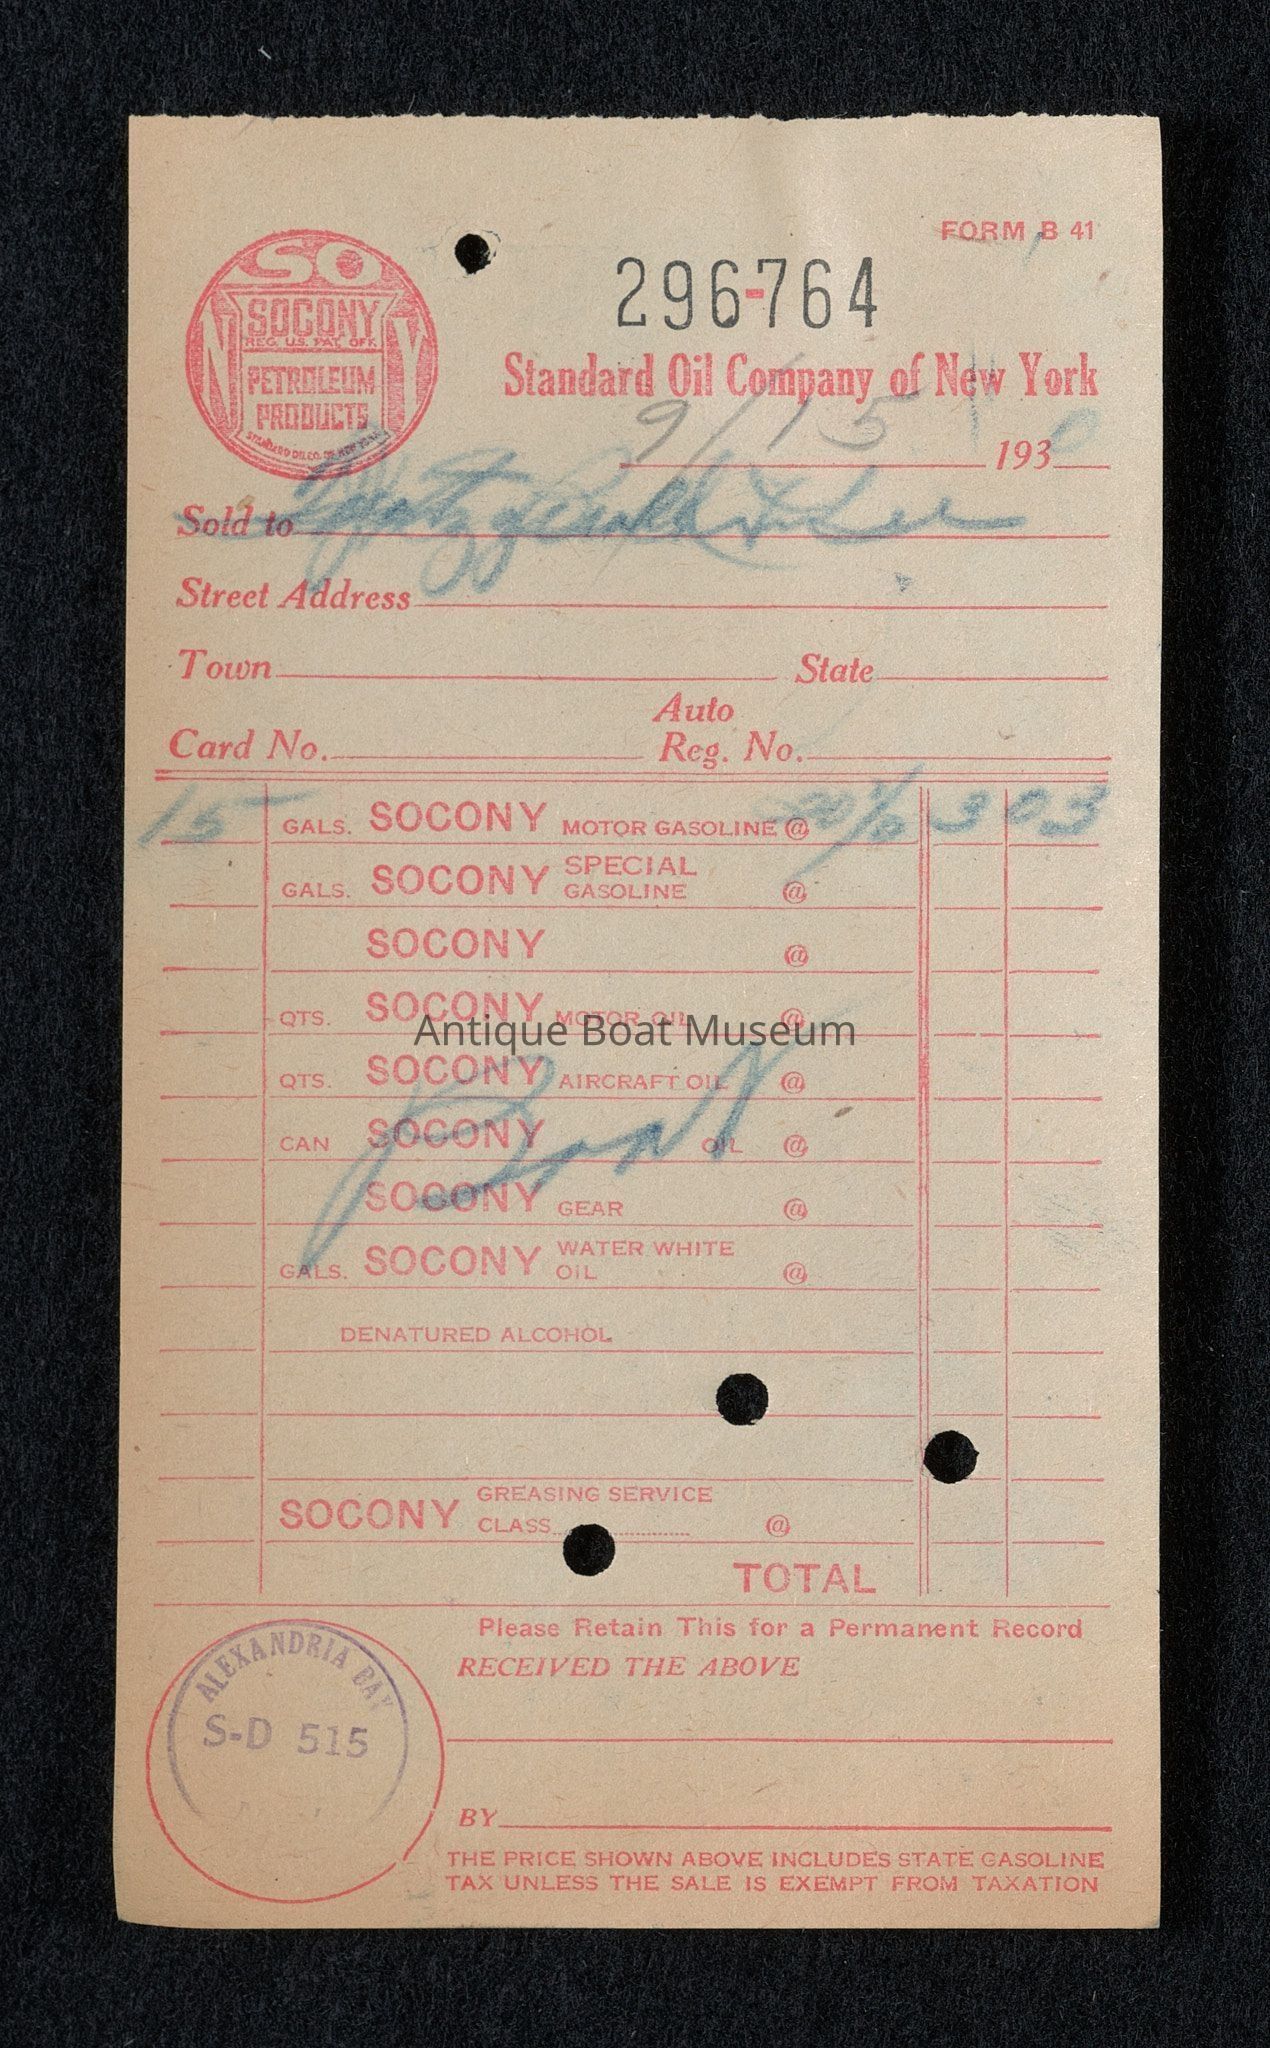 FORM B 41
SO
NY
SOCONY
REG. U.S. PAT. OFF.
PETROLEUM
PRODUCTS
STANDARD OIL CO. OF NEW YORK
296-764
Standard Oil Company of New York
9/15 1930
Sold to Fitzgerald & Lee
Street Address
Town State
Auto
Card No. Reg. No.
15 GALS. SOCONY MOTOR GASOLINE @ 3 03
GALS. SOCONY SPECIAL GASOLINE @
SOCONY @
QTS. SOCONY MOTOR OIL @
Antique Boat Museum
QTS. SOCONY AIRCRAFT OIL @
CAN SOCONY OIL @
SOCONY GEAR @
GALS. SOCONY WATER WHITE OIL @
DENATURED ALCOHOL
SOCONY GREASING SERVICE
CLASS @
TOTAL
Please Retain This for a Permanent Record
RECEIVED THE ABOVE
ALEXANDRIA BAY
S-D 515
BY
THE PRICE SHOWN ABOVE INCLUDES STATE GASOLINE
TAX UNLESS THE SALE IS EXEMPT FROM TAXATION